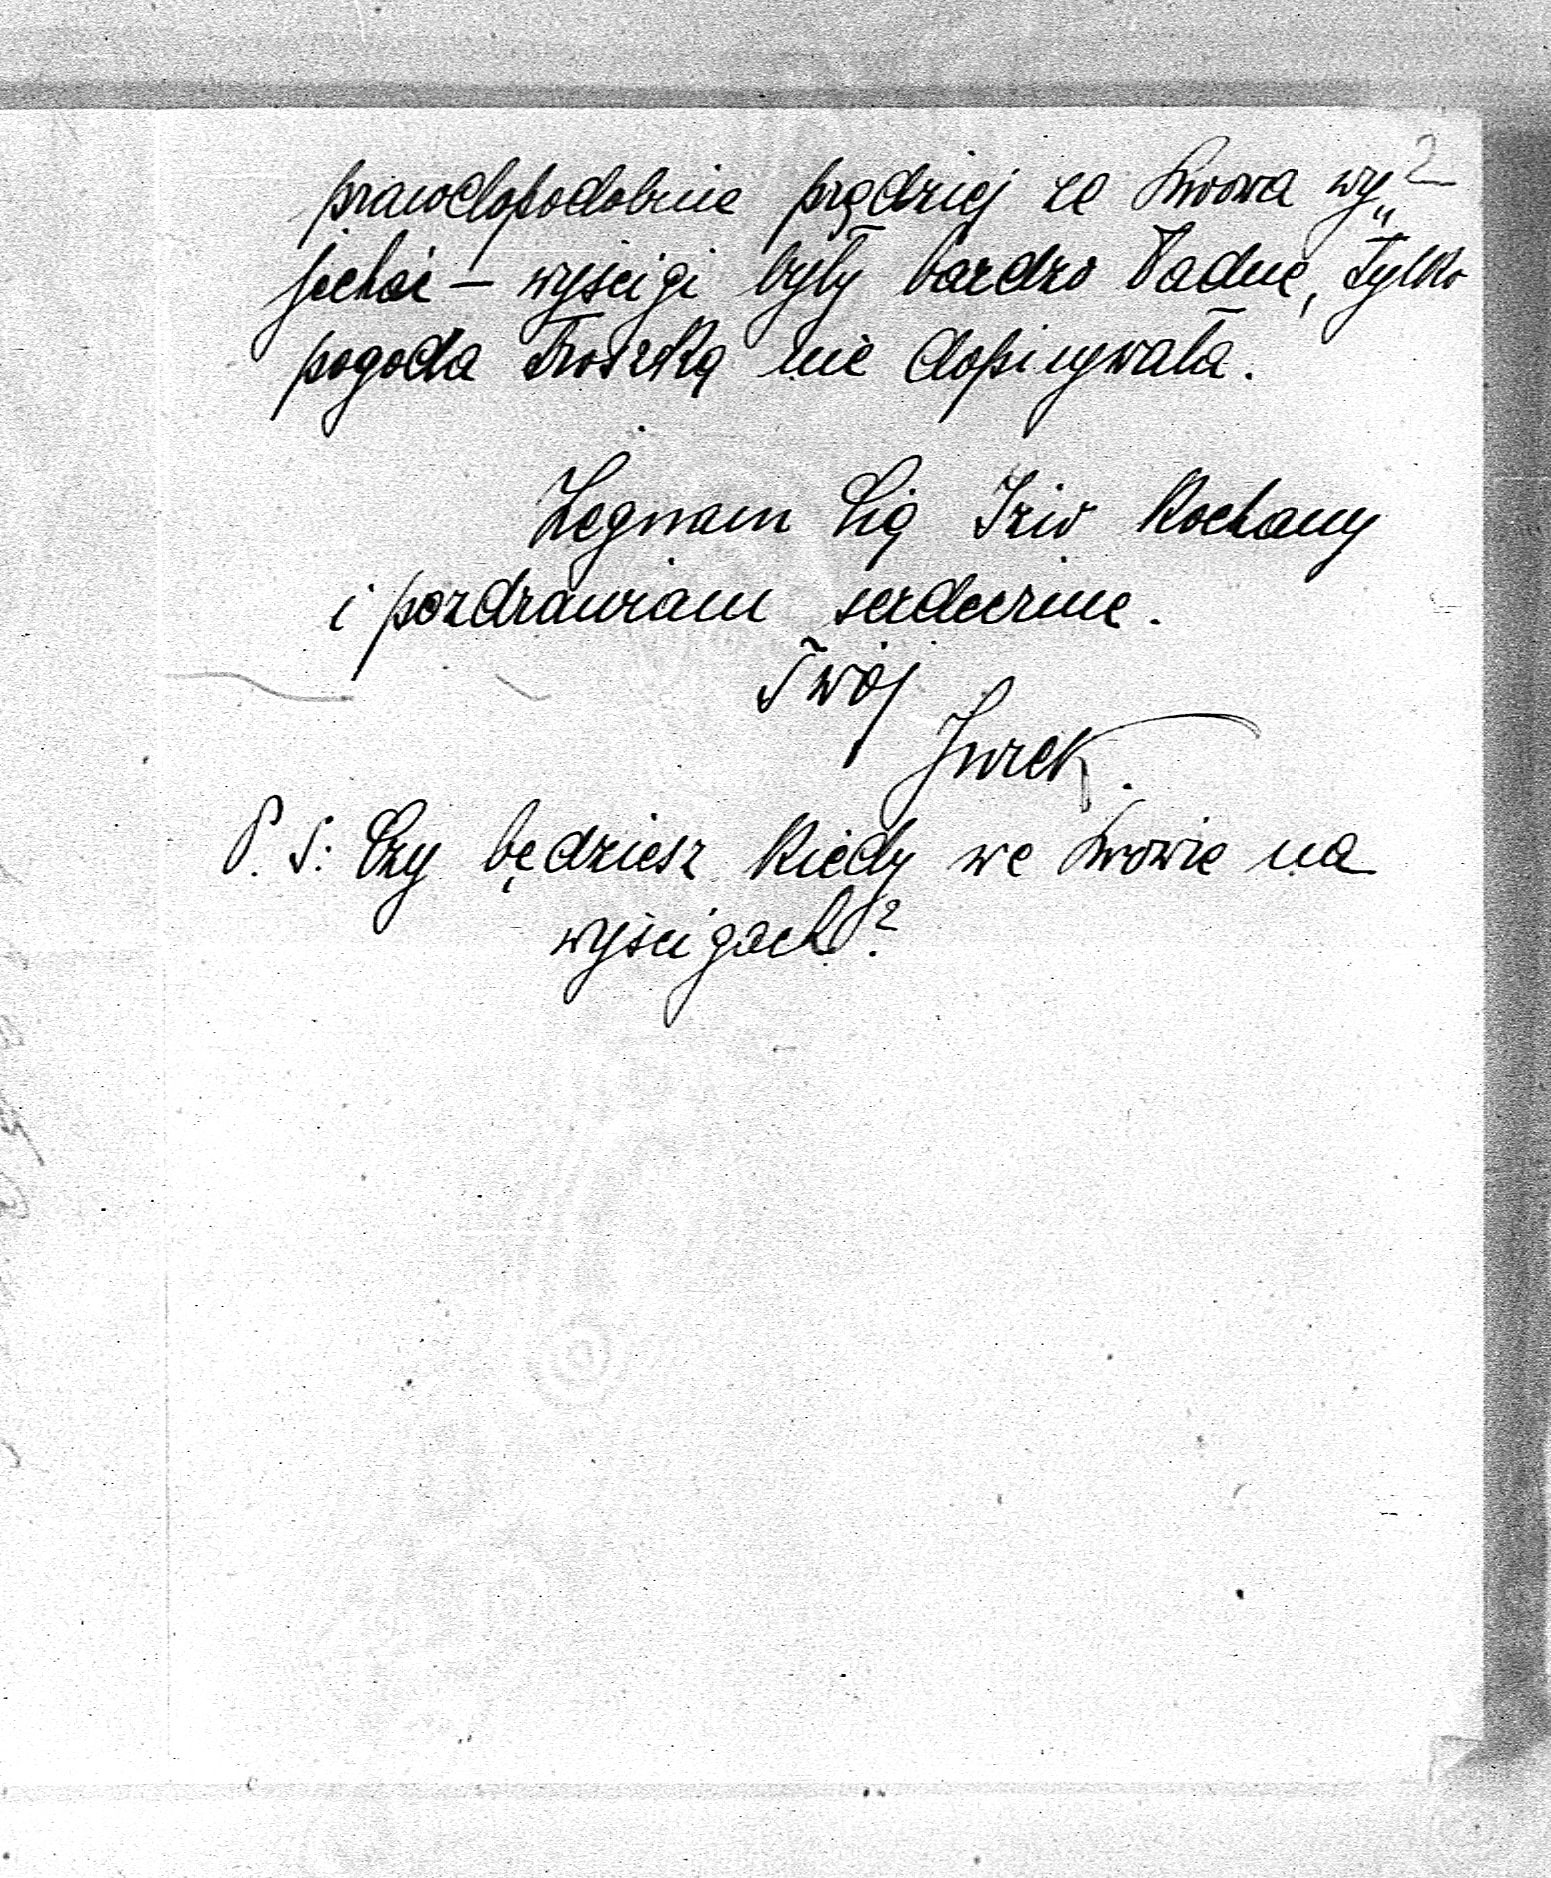 2
prawdopodobnie prędziej ze Lwowa wy„
jechać — wyścigi były bardzo ładne, tylko
pogoda troszkę nie dopisywała.
Żegnam Cię Iziu Kochany
i pozdrawiam serdecznie.
Twój
Jurek.
P. S: Czy będziesz kiedy we Lwowie na
wyścigach?